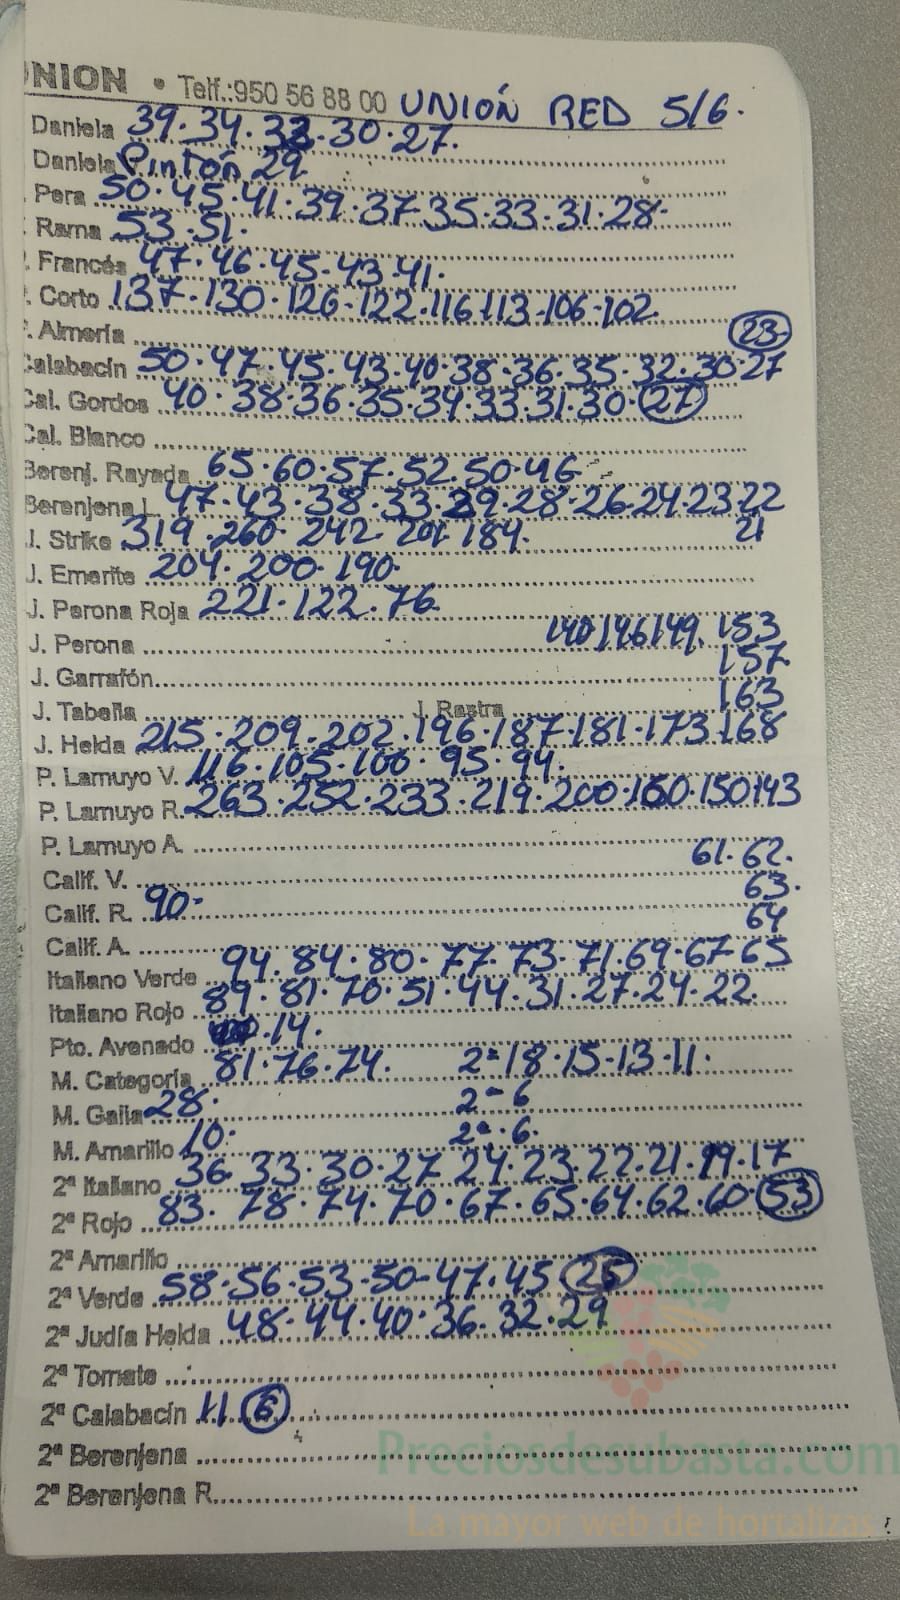 UNION • Telf.:950 56 88 00 UNIÓN RED 5/6.
Daniela 39.34.32.30.27.
Daniela Pintón 29
Pera 50.45.41.39.37.35.33.31.28.
Rama 53.51.
. Francés 47.46.45.43.41.
. Corto 137.130.126.122.116.113.106.102.
. Almería 23
Calabacín 50.47.45.43.40.38.36.35.32.30.27
Cal. Gordos 40.38.36.35.34.33.31.30.27
Cal. Blanco
Berenj. Rayada 65.60.57.52.50.46
Berenjena L. 47.43.38.33.29.28.26.24.23.22
J. Strike 319.260.242.201.184. 21
J. Emerite 204.200.190.
J. Perona Roja 221.122.76.
J. Perona 140 146 149. 153
J. Garrafón 157
J. Tabella J. Rastra 163
J. Helda 215.209.202.196.187.181.173.168
P. Lamuyo V. 116.105.100.95.94.
P. Lamuyo R. 263.252.233.219.200.160.150.143
P. Lamuyo A.
Calif. V. 61.62.
Calif. R. 90. 63.
Calif. A. 64
Italiano Verde 94.84.80.77.73.71.69.67.65
Italiano Rojo 89.81.70.51.44.31.27.24.22
Pto. Avenado 14.
M. Categoría 81.76.74. 2ª 18.15.13.11.
M. Galia 28. 2ª 6
M. Amarillo 10. 2ª.6.
2ª Italiano 36.33.30.27.24.23.22.21.19.17
2ª Rojo 83.78.74.70.67.65.64.62.60.53
2ª Amarillo
2ª Verde 58.56.53.50.47.45
2ª Judía Helda 48.44.40.36.32.29
2ª Tomate
2ª Calabacín 11 6
2ª Berenjena
Preciosdesubasta.com
2ª Berenjena R.
La mayor web de hortalizas